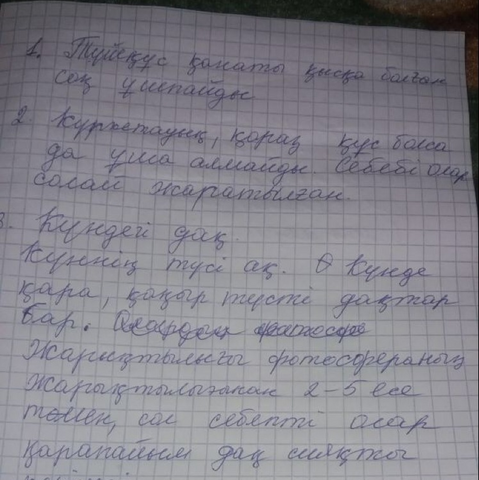 1. Түйеқұс қанаты қысқа болған
соң ұшпайды
2 Күркетауық, қораз құс болса
да ұша алмайды. Себебі олар
солай жаратылған.
3. Күндегі дақ.
Күннің түсі ақ. Күнде
қара, қоңыр түсті дақтар
бар.
Жарықтылығы фотосфераның
жарықтылығынан 2-5 есе
төмен, сол себепті олар
қарапайым дақ сияқты